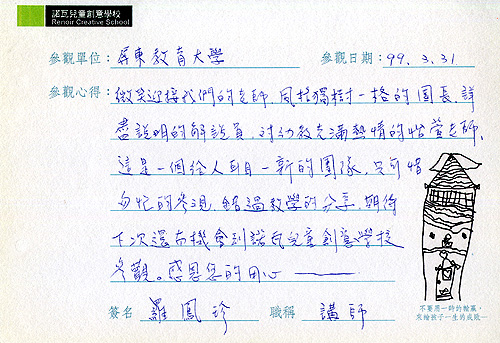 諾瓦兒童創意學校
Renoir Creative School
參觀單位：屏東教育大學 參觀日期：99.3.31
參觀心得：微笑迎接我們的老師，風格獨樹一格的園長，詳
盡說明的解說員，對幼教充滿熱情的怡萱老師，
這是一個令人耳目一新的團隊，只可惜
匆忙的參觀，錯過教學的分享，期待
下次還有機會到諾瓦兒童創意學校
參觀。感恩您的用心
不要用一時的輸贏，
來論孩子一生的成敗
簽名 羅鳳珍 職稱 講師